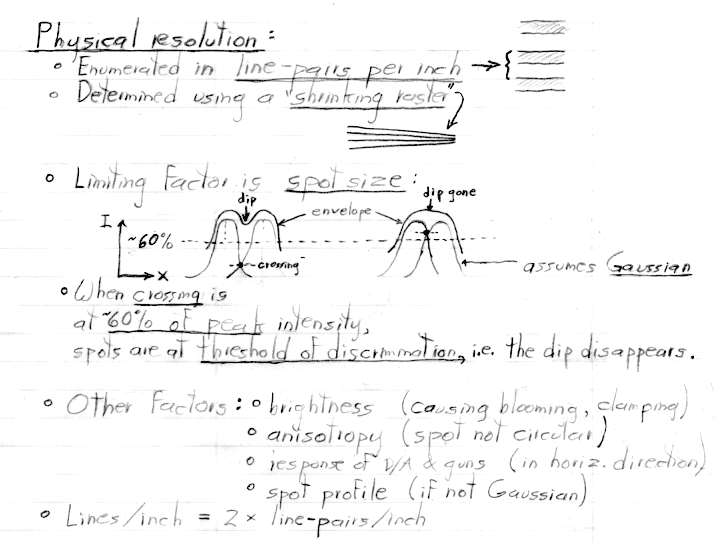 Physical resolution:
o Enumerated in line-pairs per inch
o Determined using a "shrinking raster"
o Limiting Factor is spot size:
dip
dip gone
envelope
I
~60%
crossing
x
assumes Gaussian
o When crossing is
at ~60% of peak intensity,
spots are at threshold of discrimination, i.e. the dip disappears.
o Other Factors: o brightness (causing blooming, clamping)
o anisotropy (spot not circular)
o response of D/A & guns (in horiz. direction)
o spot profile (if not Gaussian)
o Lines/inch = 2 × line-pairs/inch